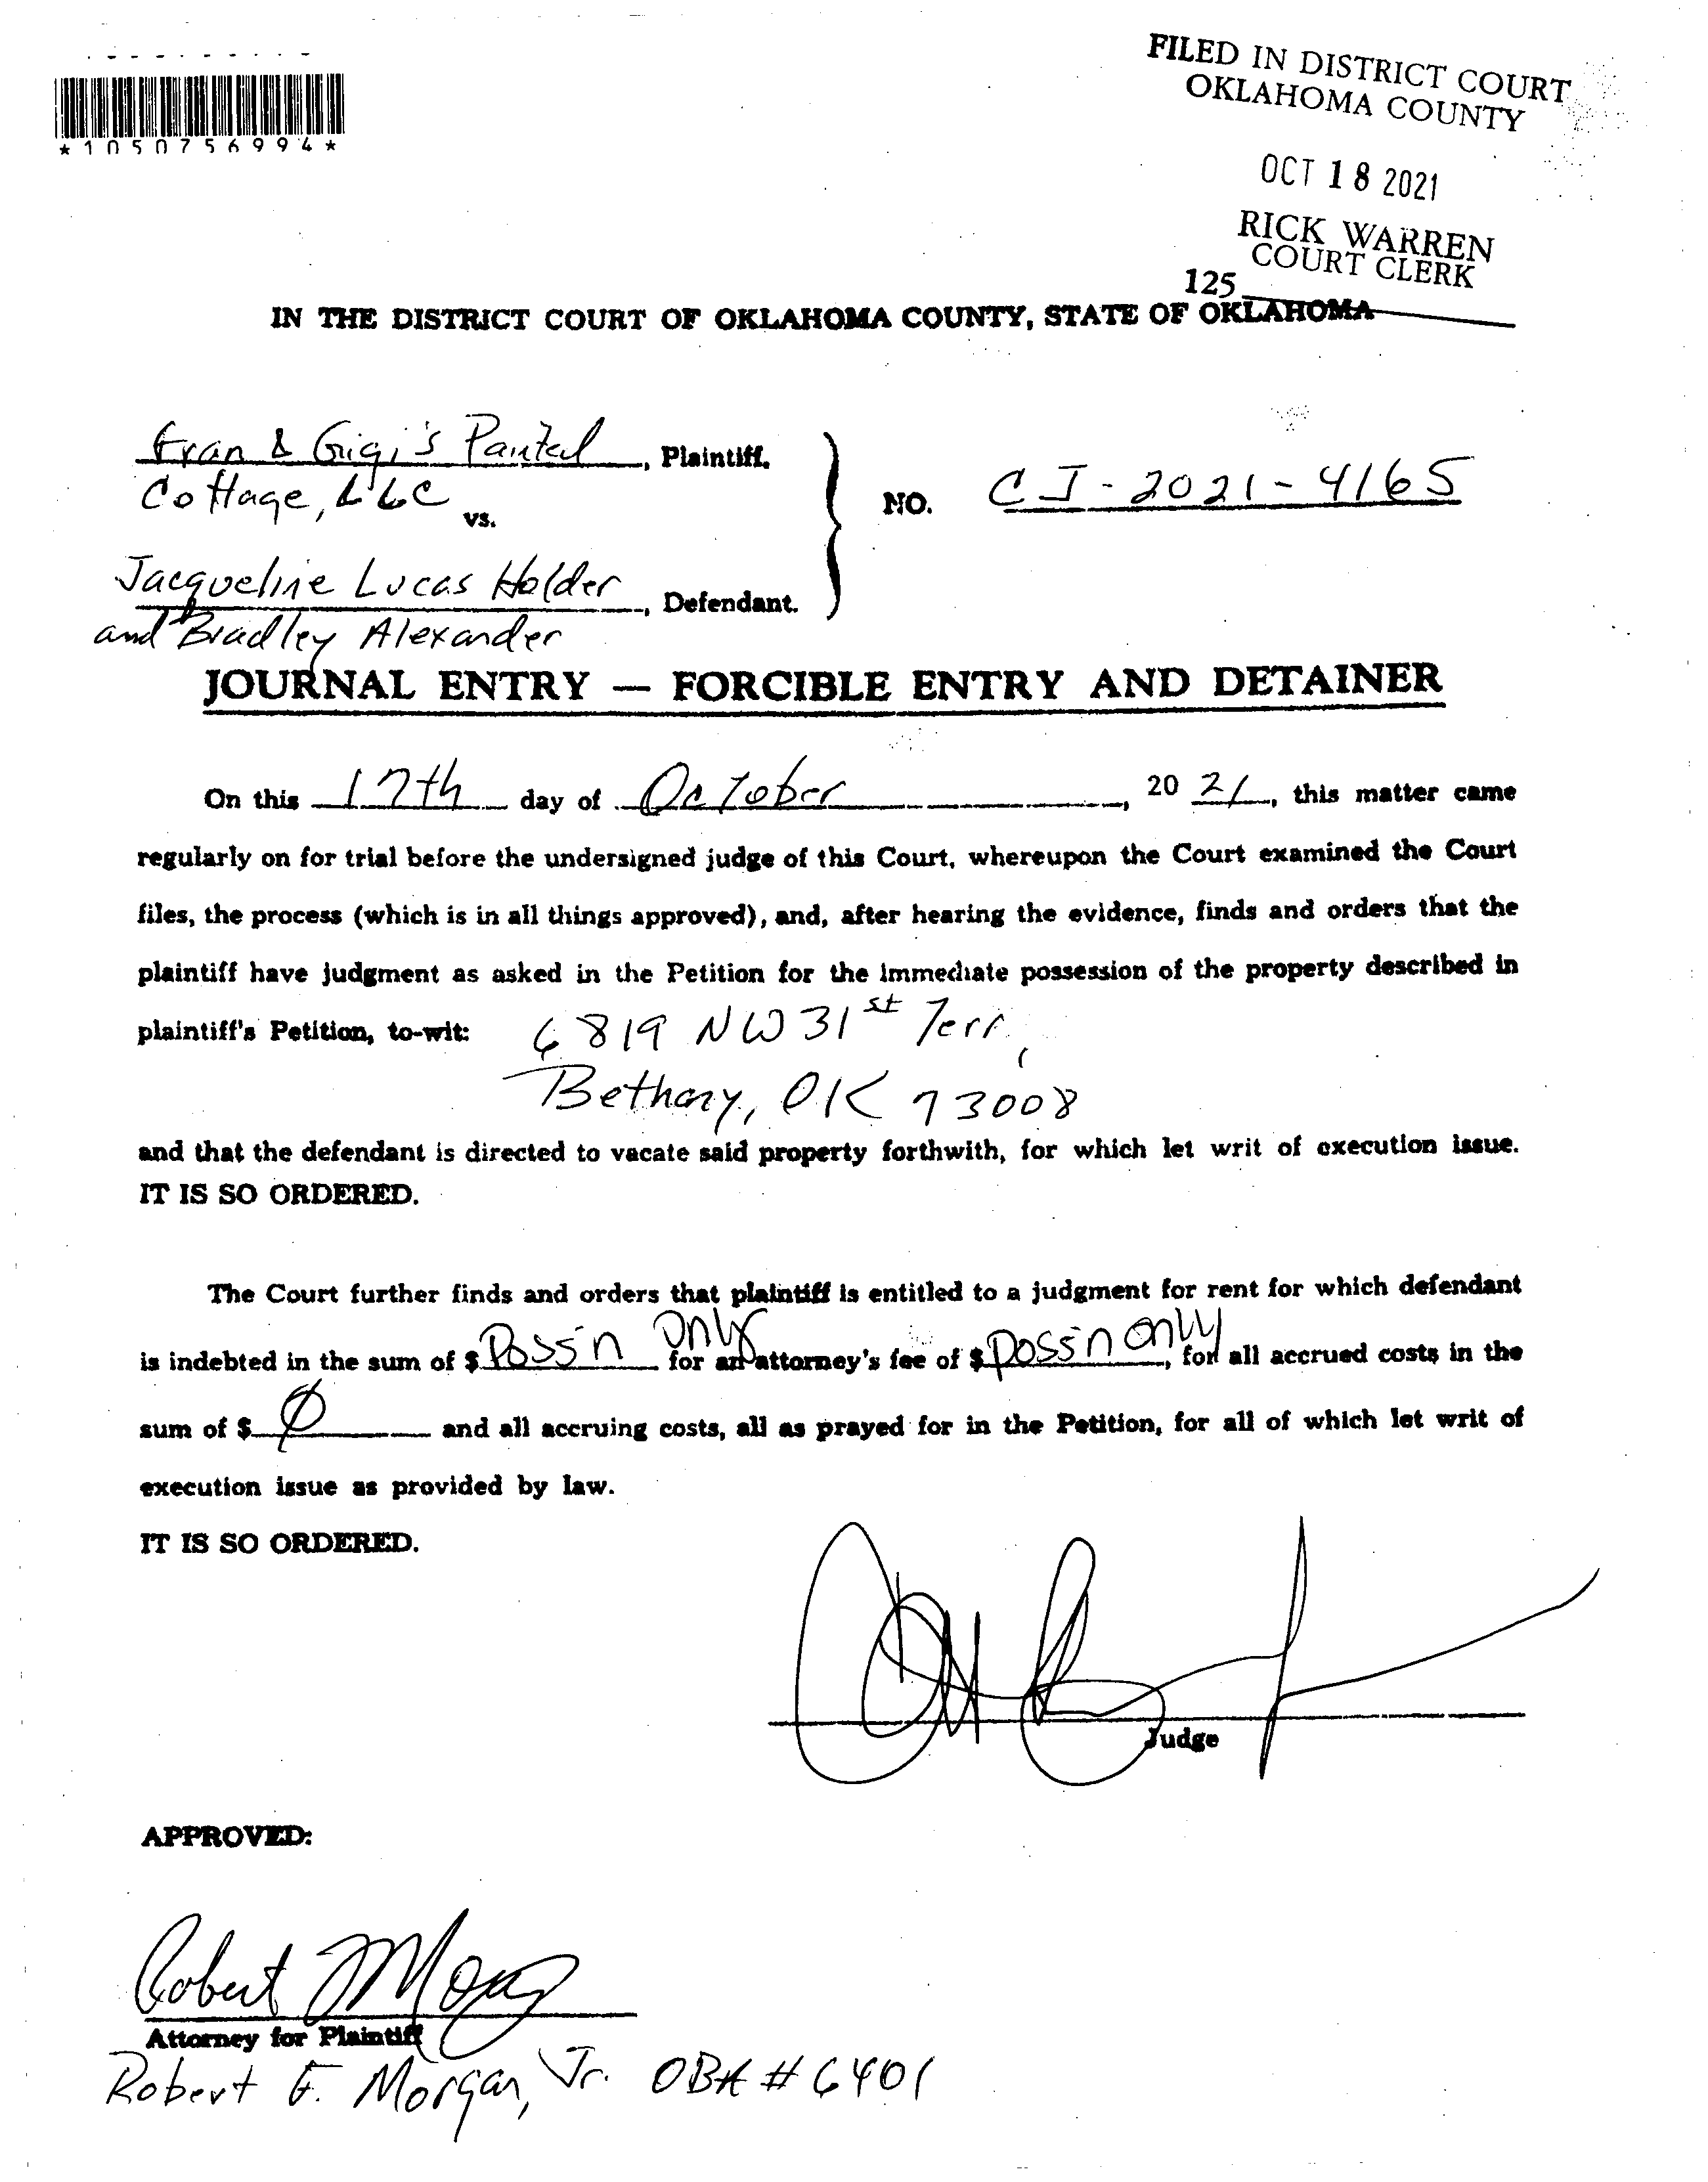 *1050756994*
FILED IN DISTRICT COURT
OKLAHOMA COUNTY
OCT 18 2021
RICK WARREN
COURT CLERK
125
IN THE DISTRICT COURT OF OKLAHOMA COUNTY, STATE OF OKLAHOMA
Fran & Gigi's Pantal, Plaintiff,
Cottage, LLC
vs.
NO. CJ-2021-4165
Jacqueline Lucas Holder, Defendant.
and Bradley Alexander
JOURNAL ENTRY — FORCIBLE ENTRY AND DETAINER
On this 17th day of October, 20 21, this matter came
regularly on for trial before the undersigned judge of this Court, whereupon the Court examined the Court
files, the process (which is in all things approved), and, after hearing the evidence, finds and orders that the
plaintiff have judgment as asked in the Petition for the immediate possession of the property described in
plaintiff's Petition, to-wit: 6819 NW 31st Terr,
Bethany, OK 73008
and that the defendant is directed to vacate said property forthwith, for which let writ of execution issue.
IT IS SO ORDERED.
The Court further finds and orders that plaintiff is entitled to a judgment for rent for which defendant
is indebted in the sum of $ Poss'n Only for an attorney's fee of $ poss'n only, for all accrued costs in the
sum of $ Ø and all accruing costs, all as prayed for in the Petition, for all of which let writ of
execution issue as provided by law.
IT IS SO ORDERED.
Judge
APPROVED:
Robert J Morg
Attorney for Plaintiff
Robert F. Morgan, Jr. OBA # 6401